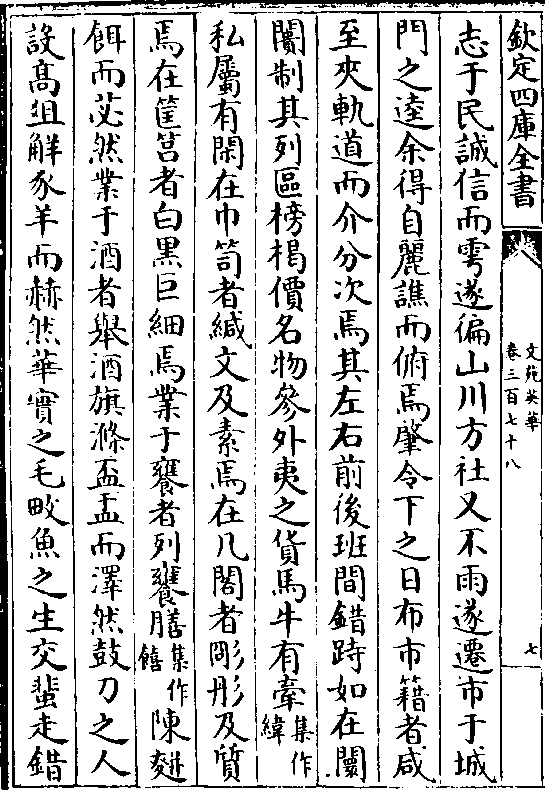 欽定四庫全書
文苑英華
卷三百七十八
七
志于民誠信而雩遂徧山川方社又不雨遂遷市于城
門之逵余得自麗譙而俯焉肇令下之日布市籍者咸
至夾軌道而介分次焉其左右前後班間錯跱如在闤
闠制其列區榜楬價名物參外夷之貨馬牛有牽集作緯
私屬有閑在巾笥者緘文及素焉在几閣者彫彤及質
焉在筐筥者白黑巨細焉業于饔者列饔膳集作饎陳䴵
餌而苾然業于酒者舉酒旗滌盃盂而澤然鼓刀之人
設髙俎解豕羊而赫然華實之毛畋魚之生交蜚走錯